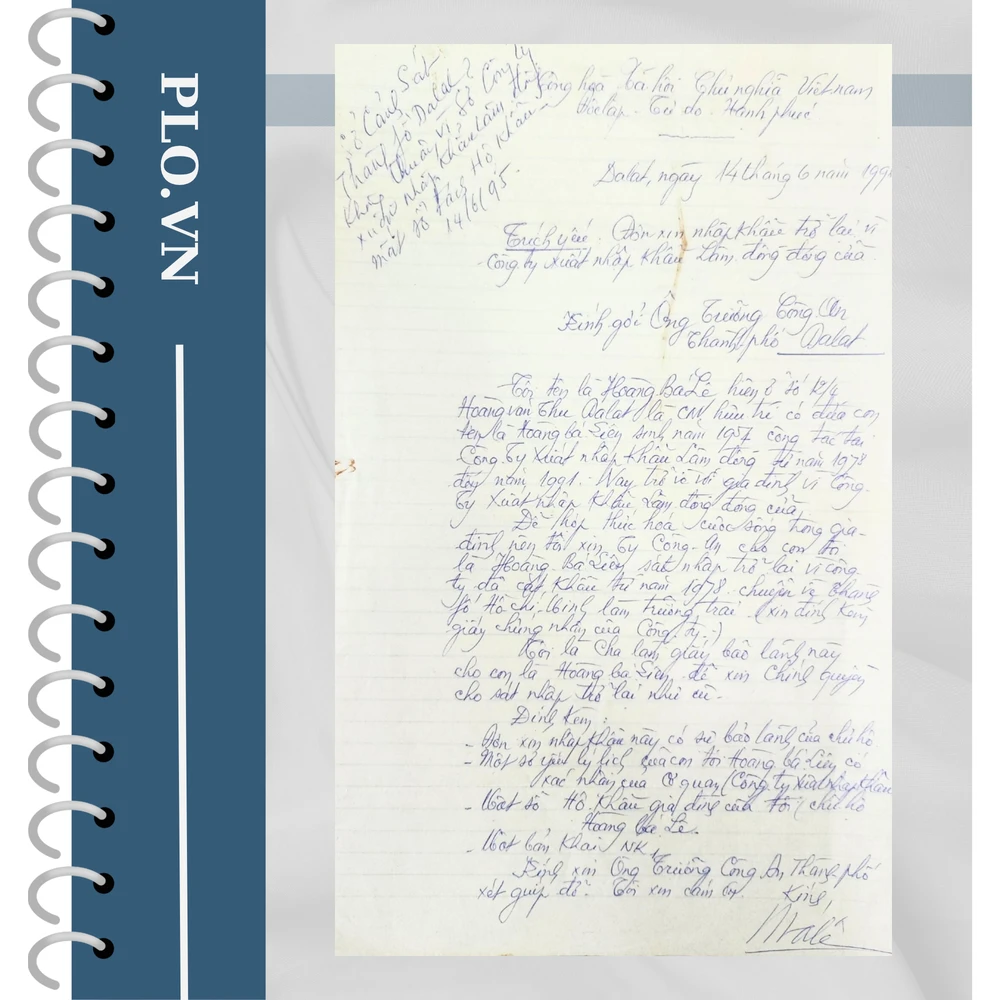 PLO.VN
Sở Cảnh Sát
Thành fố Dalat
không thuận vì Sở Công ty
xuất nhập khẩu Lâm đồng
mất sổ Hộ khẩu
14/6/95.
Cộng hoà Xã hội Chủ nghĩa Việt nam
Độc lập - Tự do - Hạnh phúc
Dalat, ngày 14 tháng 6 năm 199
Trích yếu. Đơn xin nhập khẩu trở lại vì
Công ty xuất nhập khẩu Lâm đồng đóng cửa.
Kính gởi Ông Trưởng Công An
Thành phố Dalat
Tôi tên là Hoàng Bá Lê hiện ở số 12/4
Hoàng văn Thụ Dalat là CM hưu trí có đứa con
tên là Hoàng bá Liên sinh năm 1957 công tác tại
Công ty Xuất nhập khẩu Lâm đồng từ năm 1978
đến năm 1991. Nay trở về với gia đình vì Công
ty Xuất nhập khẩu Lâm đồng đóng cửa.
Để hợp thức hoá cuộc sống trong gia
đình nên tôi xin Ty Công-An cho con tôi
là Hoàng Bá Liên sát nhập trở lại vì công
ty đã cắt khẩu từ năm 1978 chuyển về Thành
fố Hồ chí Minh làm trưởng trại (xin đính kèm
giấy chứng nhận của Công ty.)
Tôi là Cha làm giấy bảo lãnh này
cho con là Hoàng bá Liên để xin Chính quyền
cho sát nhập trở lại như cũ.
Đính kèm:
- Đơn xin nhập khẩu này có sự bảo lãnh của chủ hộ
- Một sơ yếu lý lịch của con tôi Hoàng bá Liên có
xác nhận của Cơ quan (Công ty Xuất nhập khẩu
- Một sổ Hộ khẩu gia đình của tôi (chủ hộ
Hoàng bá Lê.
- Một bản Khai NK
Kính xin Ông Trưởng Công An Thành phố
xét giúp đỡ. Tôi xin cảm ơn.
Kính,